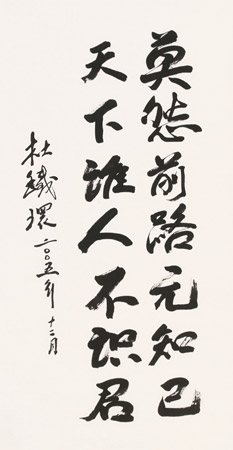 莫愁前路无知己
天下谁人不识君
杜鐵環 二〇〇五年十二月